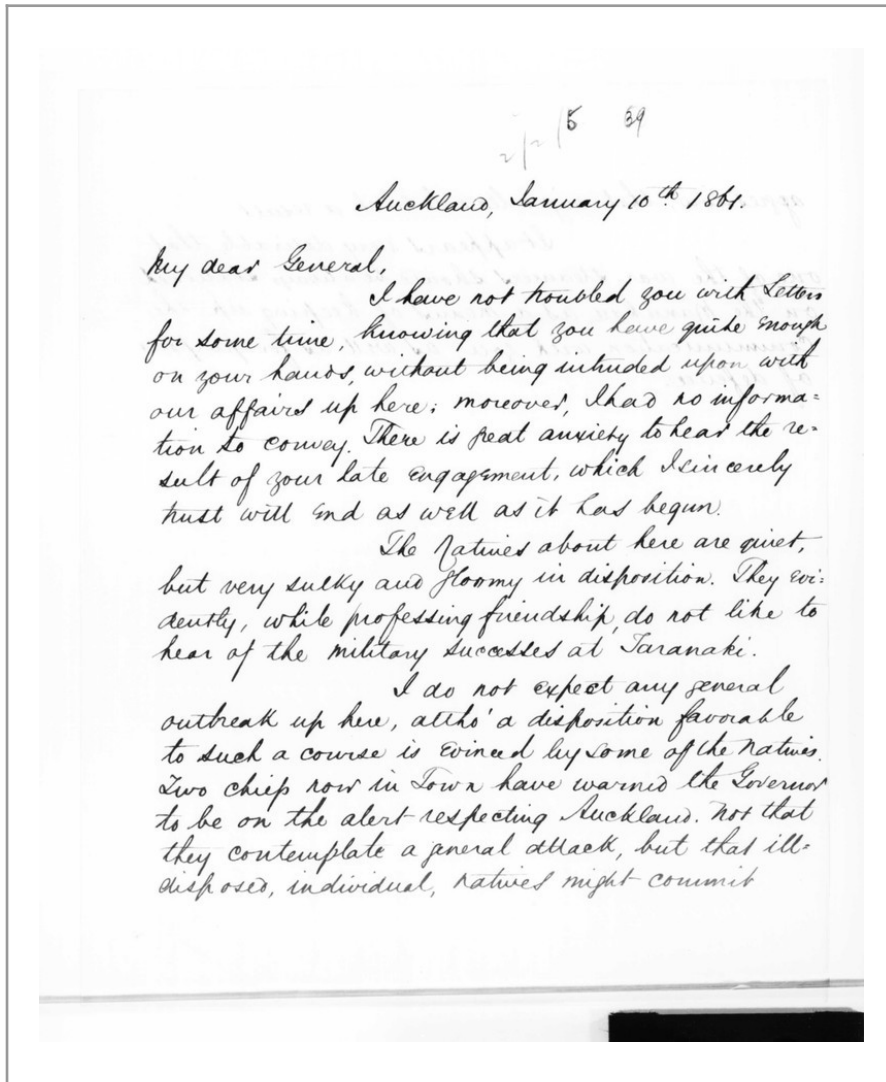 5 39
Auckland, January 10th 1861.
My dear General,
I have not troubled you with Letters
for some time, knowing that you have quite enough
on your hands, without being intruded upon with
our affairs up here; moreover, I had no informa=
tion to convey. There is great anxiety to hear the re=
sult of your late engagement, which I sincerely
trust will end as well as it has begun.
The Natives about here are quiet,
but very sulky and gloomy in disposition. They evi=
dently, while professing friendship, do not like to
hear of the military successes at Taranaki.
I do not expect any general
outbreak up here, altho' a disposition favorable
to such a course is evinced by some of the Natives.
Two chiefs now in Town have warned the Governor
to be on the alert respecting Auckland. Not that
they contemplate a general attack, but that ill=
disposed, individual, natives might commit